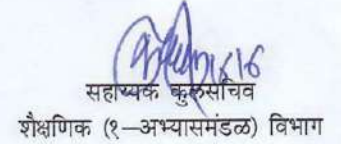 सहाय्यक कुलसचिव
शैक्षणिक (१—अभ्यासमंडळ) विभाग